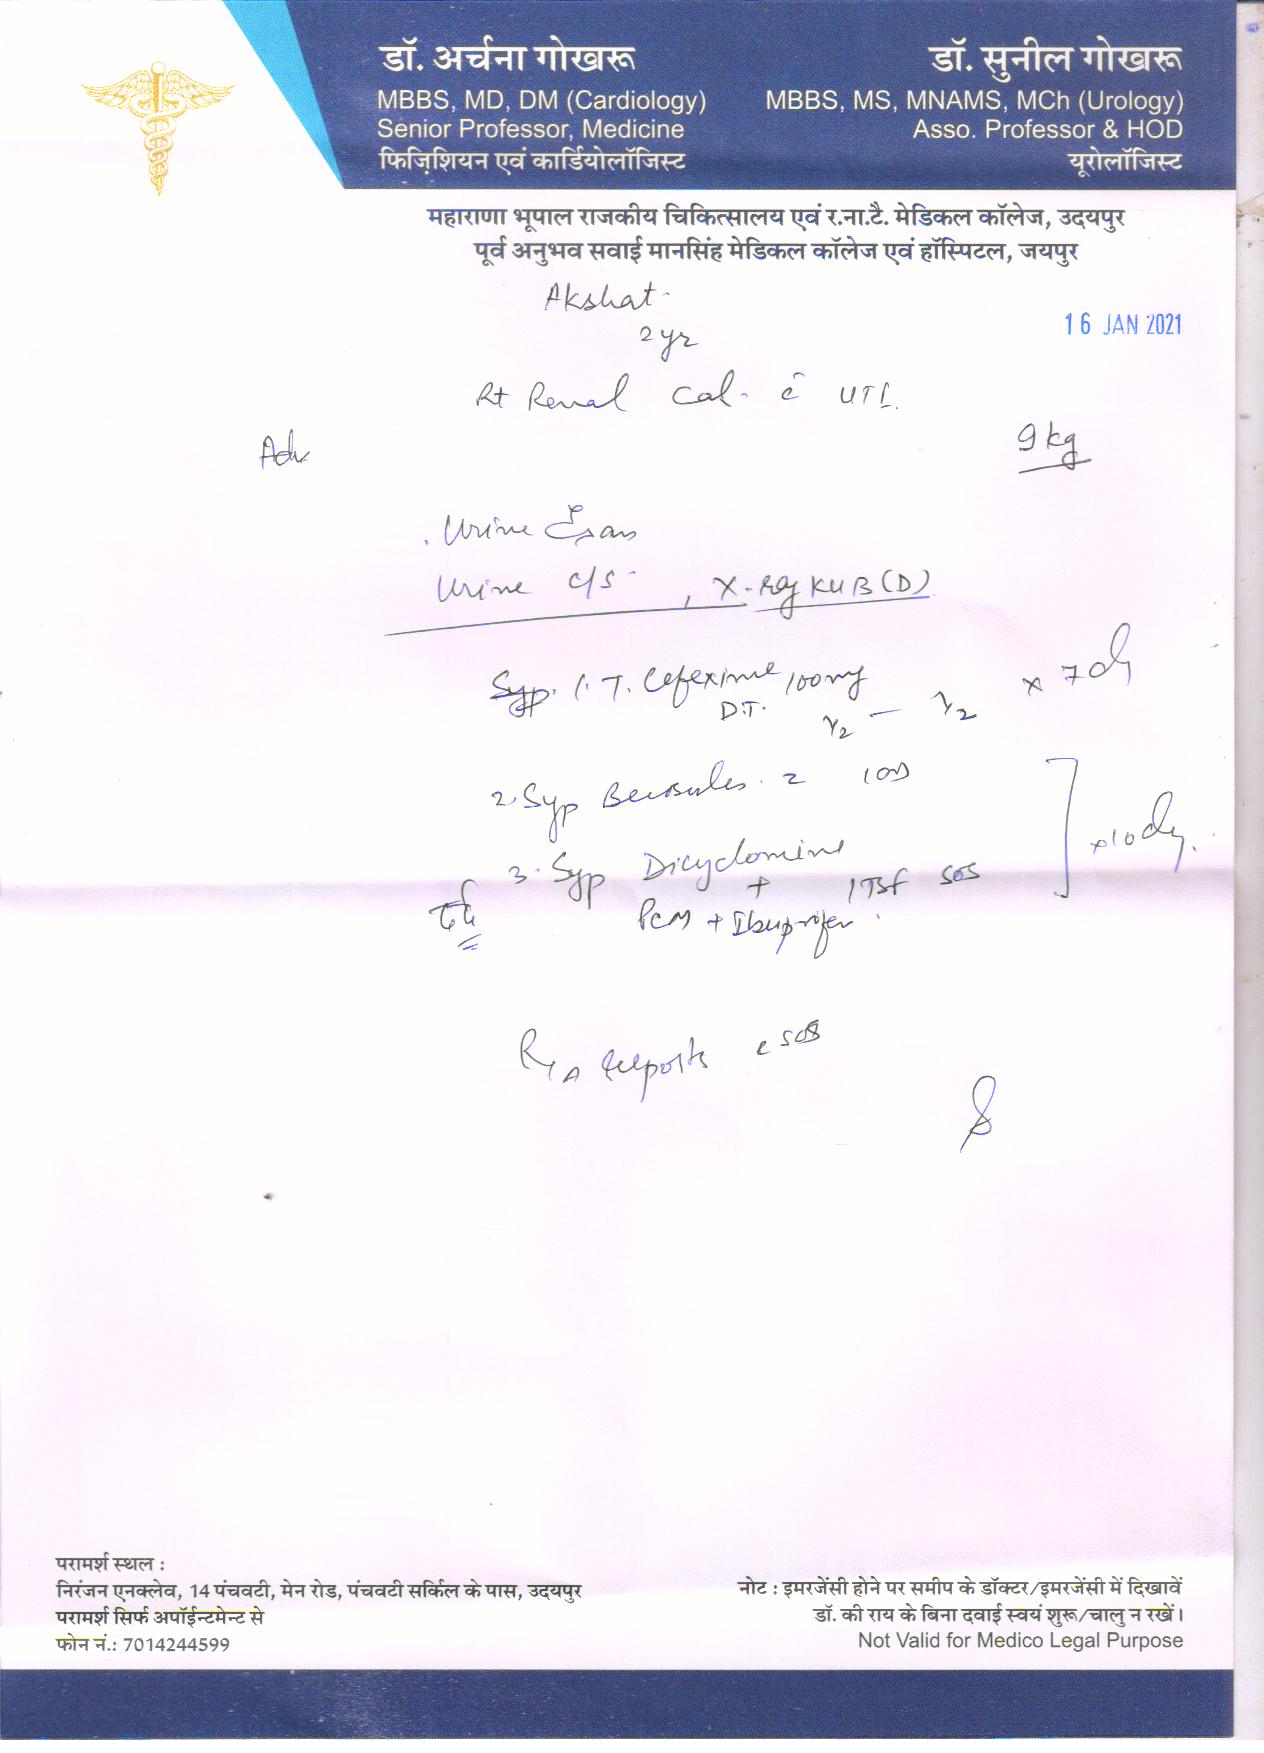 डॉ. अर्चना गोखरू
MBBS, MD, DM (Cardiology)
Senior Professor, Medicine
फिज़िशियन एवं कार्डियोलॉजिस्ट
डॉ. सुनील गोखरू
MBBS, MS, MNAMS, MCh (Urology)
Asso. Professor & HOD
यूरोलॉजिस्ट
महाराणा भूपाल राजकीय चिकित्सालय एवं र.ना.टै. मेडिकल कॉलेज, उदयपुर
पूर्व अनुभव सवाई मानसिंह मेडिकल कॉलेज एवं हॉस्पिटल, जयपुर
Akshat
16 JAN 2021
2 yr
Rt Renal Cal. c̄ UTI.
9 kg
Adv
Urine Exam
Urine C/S , X-Ray KUB (D)
1. T. Cefexime 100mg
D.T. 1/2 — 1/2 x 7 d
2. Syp 2 1 OD
3. Syp Dicyclomine
+ 1 TSF SOS x 10 dy.
दर्द PCM + Ibuprofen
Reports c SOS
परामर्श स्थल :
निरंजन एनक्लेव, 14 पंचवटी, मेन रोड, पंचवटी सर्किल के पास, उदयपुर
परामर्श सिर्फ अपॉईन्टमेन्ट से
फोन नं.: 7014244599
नोट : इमरजेंसी होने पर समीप के डॉक्टर/इमरजेंसी में दिखावें
डॉ. की राय के बिना दवाई स्वयं शुरू/चालु न रखें।
Not Valid for Medico Legal Purpose